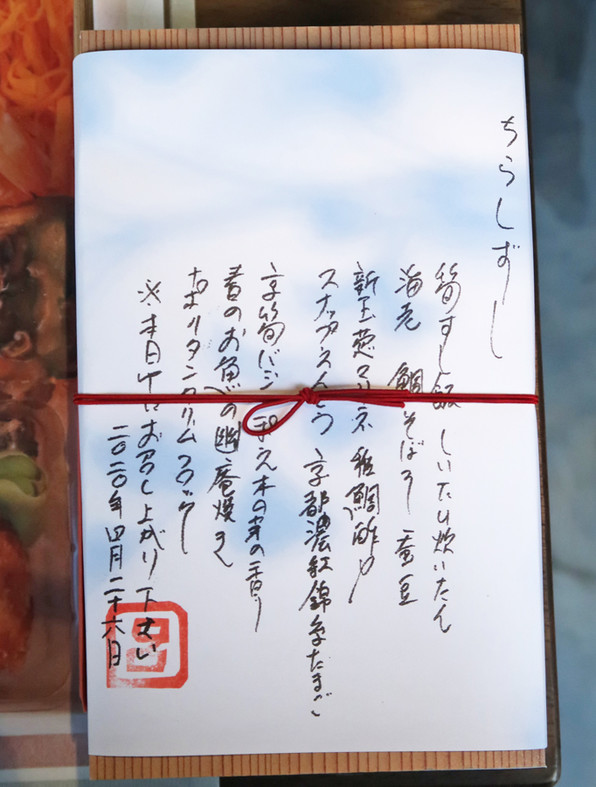 ちらしずし
筍すし飯 しいたけ炊いたん
海老 鯛そぼろ 蚕豆
新玉葱マリネ 稚鯛酢〆
スナップえんどう 京都濃紅錦糸たまご
京筍バジル和え木の芽の香り
春のお魚の幽庵焼き
ナポリタンクリームコロッケ
※本日中にお召し上がり下さい
二〇二〇年四月二十六日